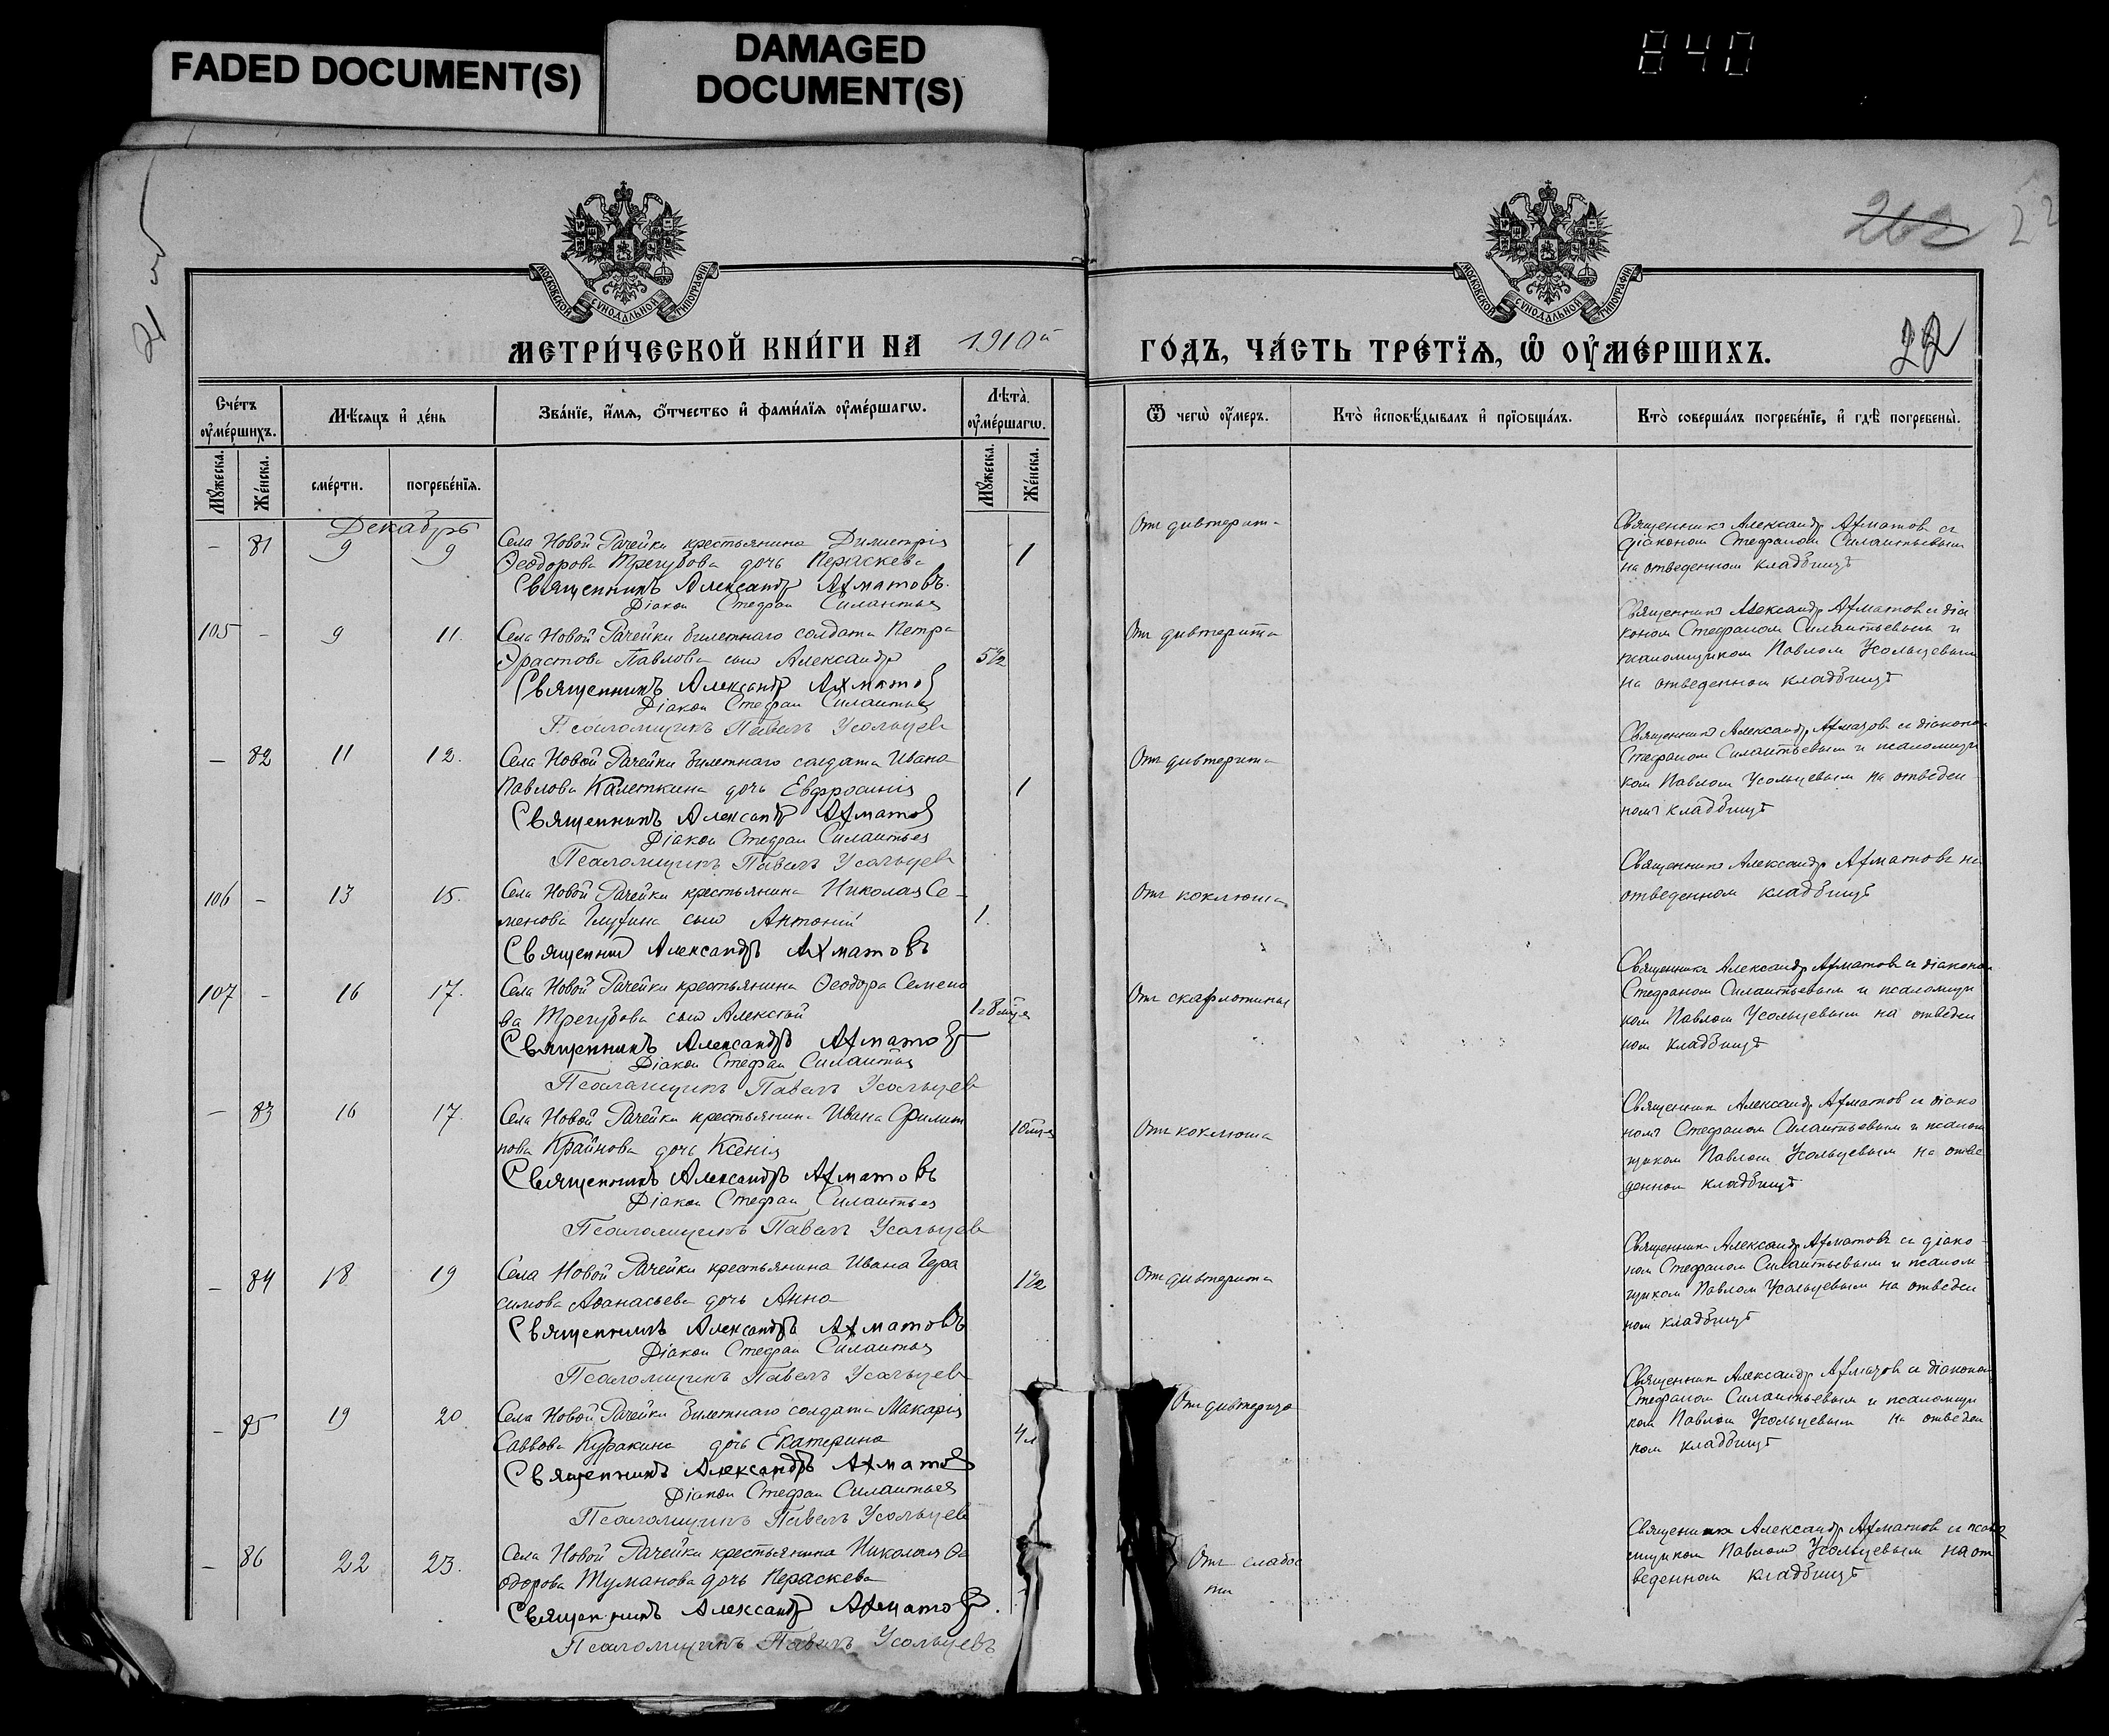 FADED DOCUMENT(S)
DAMAGED
DOCUMENT(S)
840
МОСКОВСКОЙ СУНОДАЛЬНОЙ ТИПОГРАФІИ
МОСКОВСКОЙ СУНОДАЛЬНОЙ ТИПОГРАФІИ
262
22
МЕТРИ́ЧЕСКОЙ КНИ́ГИ НА 1910й
ГО́ДЪ, ЧА́СТЬ ТРЕ́ТЇѦ, Ѡ҆ ОУ҆МЕ́РШИХЪ.
22
Сче́тъ оу҆ме́ршихъ.
Мѣ́сѧцъ и҆ де́нь
Зва́нїе, и҆́мѧ, ѻ҆́тчество и҆ фами́лїѧ оу҆ме́ршагѡ.
Лѣ́та̀ оу҆ме́ршагѡ.
Ѿ чегѡ̀ оу҆́меръ.
Кто̀ и҆сповѣ́дывалъ и҆ прїѡбща́лъ.
Кто̀ соверша́лъ погребе́нїе, и҆ гдѣ̀ погребены̀.
Мꙋ́жеска.
Же́нска.
сме́рти.
погребе́нїѧ.
Мꙋ́жеска.
Же́нска.
Декабрь
– 81 9 9
Села Новой Рачейки крестьянина Димитрія
Ѳеодорова Трегубова дочь Пераскева
1
Священникъ Александр Ахматовъ.
Діакон Стефан Силантьев
От дифтерит
Священникъ Александр Ахматовъ съ
діаконом Стефаном Силантьевым
на отведенном кладбищѣ
105 – 9 11.
Села Новой Рачейки билетнаго солдата Петра
Ерастова Павлова сын Александр
5½
Священникъ Александр Ахматов
Діакон Стефан Силантьев
Псаломщикъ Павелъ Усольцев
От дифтерита
Священникъ Александр Ахматов съ діа
коном Стефаном Силантьевым и
псаломщиком Павлом Усольцевым
на отведенном кладбищѣ
– 82 11 12.
Села Новой Рачейки билетнаго солдата Ивана
Павлова Калеткина дочь Евфросинія
1
Священникъ Александр Ахматов
Діакон Стефан Силантьев
Псаломщикъ Павелъ Усольцев
От дифтерита
Священникъ Александр Ахматов съ діаконом
Стефаном Силантьевым и псаломщи
ком Павлом Усольцевым на отведен
номъ кладбищѣ
106 – 13 15.
Села Новой Рачейки крестьянина Николая Се-
менова Глухина сын Антоній
1.
Священник Александръ Ахматовъ
От коклюша
Священникъ Александр Ахматовъ на
отведенном кладбищѣ
107 – 16 17.
Села Новой Рачейки крестьянина Ѳеодора Семено
ва Трегубова сын Алексѣй
1 г 8 мця
Священникъ Александръ Ахматов
Діакон Стефан Силантьев
Псаломщикъ Павелъ Усольцев
От скарлотины
Священникъ Александр Ахматов съ діаконом
Стефаном Силантьевым и псаломщи
ком Павлом Усольцевым на отведен
ном кладбищѣ
– 83 16 17.
Села Новой Рачейки крестьянина Ивана Филип
пова Крайнова дочь Ксенія
10 мця
Священникъ Александръ Ахматовъ
Діакон Стефан Силантьев
Псаломщикъ Павелъ Усольцев
От коклюша
Священник Александр Ахматов съ діако
номъ Стефаном Силантьевым и псалом
щиком Павлом Усольцевым на отве
денном кладбищѣ
– 84 18 19
Села Новой Рачейки крестьянина Ивана Гера
симова Аѳанасьева дочь Анна
1½
Священникъ Александръ Ахматовъ
Діакон Стефан Силантьев
Псаломщикъ Павелъ Усольцев
От дифтерита
Священник Александр Ахматовъ съ діако-
ном Стефаном Силантьевым и псалом
щиком Павлом Усольцевым на отведен
ном кладбищѣ
– 85 19 20
Села Новой Рачейки билетнаго солдата Макарія
Саввова Куракина дочь Екатерина
4 л
Священникъ Александръ Ахматов
Діакон Стефан Силантьев
Псаломщикъ Павелъ Усольцев
От дифтерита
Священник Александр Ахматов съ діаконом
Стефаном Силантьевым и псаломщи
ком Павлом Усольцевым на отведен
ном кладбищѣ
– 86 22 23.
Села Новой Рачейки крестьянина Николая Ѳе
одорова Туманова дочь Пераскева
Священникъ Александр Ахматов.
Псаломщикъ Павелъ Усольцевъ
От слабос
ти
Священник Александр Ахматов съ псало
мщиком Павлом Усольцевым на от
веденном кладбищѣ